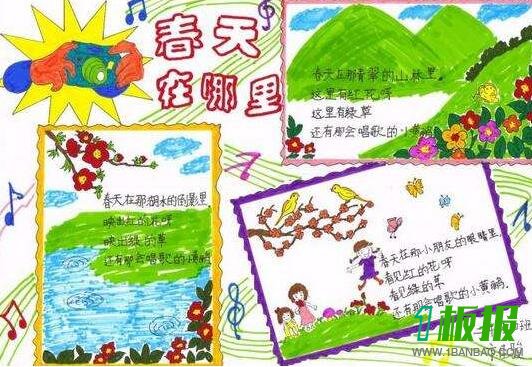 春天
在哪里
春天在那青翠的山林里。
这里有红花呀
这里有绿草
还有那会唱歌的小黄鹂
春天在那湖水的倒影里
映出红的花呀
映出绿的草
还有那会唱歌的小黄鹂
春天在那小朋友的眼睛里。
看见红的花呀
看见绿的草
还有那会唱歌的小黄鹂。
班
1板报
WWW.1BANBAO.COM